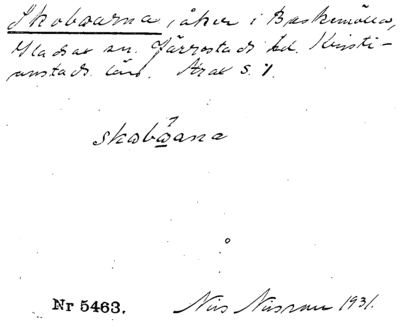 Skobwarna, åker i Baskemölla,
Gladsax sn. Järrestads hd. Kristi-
anstads län. Arax s. 7.
skabwana
Nr 5463. Nils Nilsson 1931.